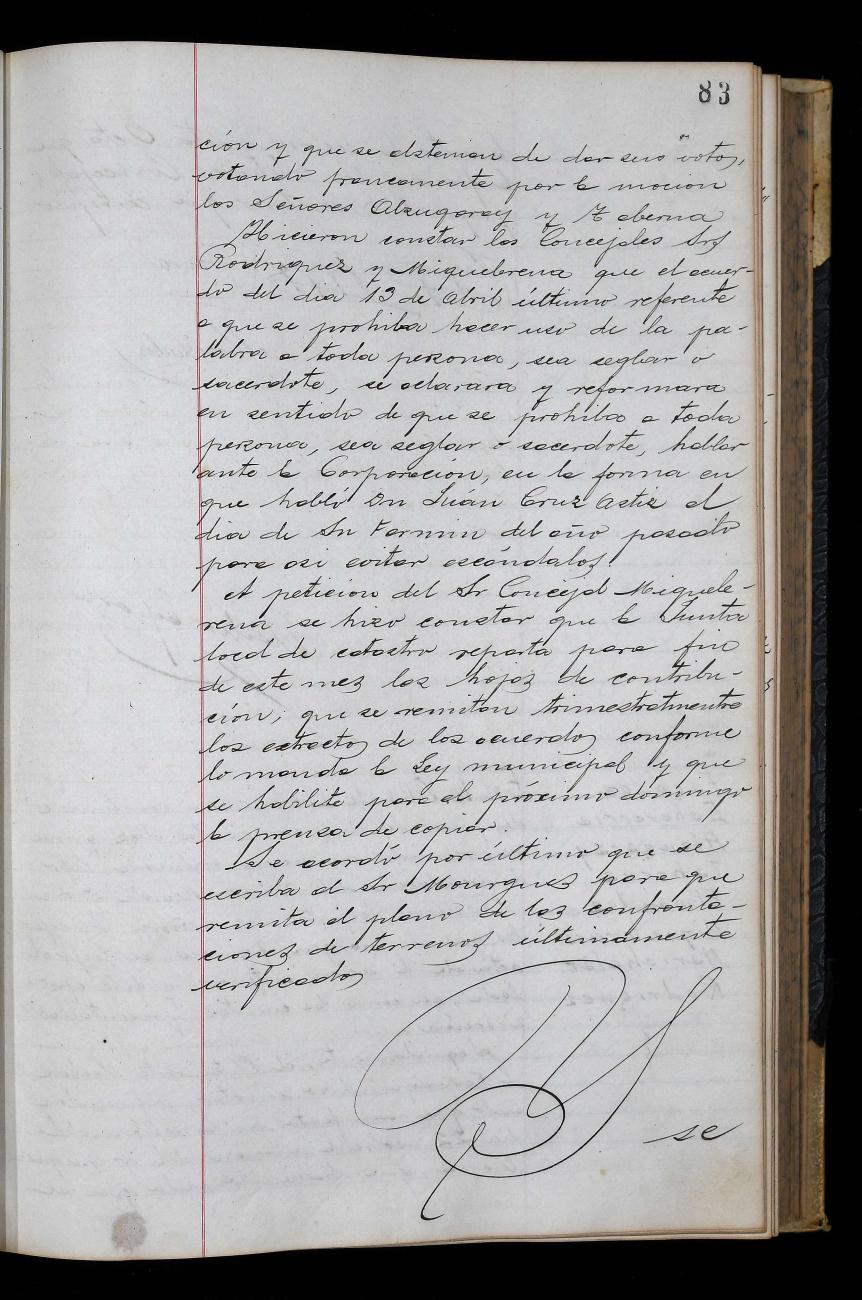 83
ción y que se abstenian de dar sus votos,
votando francamente por la mocion
los Señores Alzugaray y Taberna
Hicieron constar los Concejales Srs
Rodriguez y Miquelerena que el acuer-
do del dia 13 de abril último referente
a que se prohiba hacer uso de la pa-
labra a toda persona, sea seglar o
sacerdote, se aclarara y reformara
en sentido de que se prohiba a toda
persona, sea seglar o sacerdote, hablar
ante la Corporacion, en la forma en
que habló Dn Juán Cruz Astiz el
dia de Sn Fermin del año pasado
para asi evitar escándalos.
A peticion del Sr Concejal Miquele-
rena se hizo constar que la Junta
local de catastro reparta para fin
de este mes las hojas de contribu-
ción; que se remitan trimestralmente
los extractos de los acuerdos conforme
lo manda la Ley municipal y que
se habilite para el próximo domingo
la prensa de copiar.
Se acordó por último que se
escriba al Sr Mourguez para que
remita el plano de las confronta-
ciones de terrenos últimamente
verificados
se